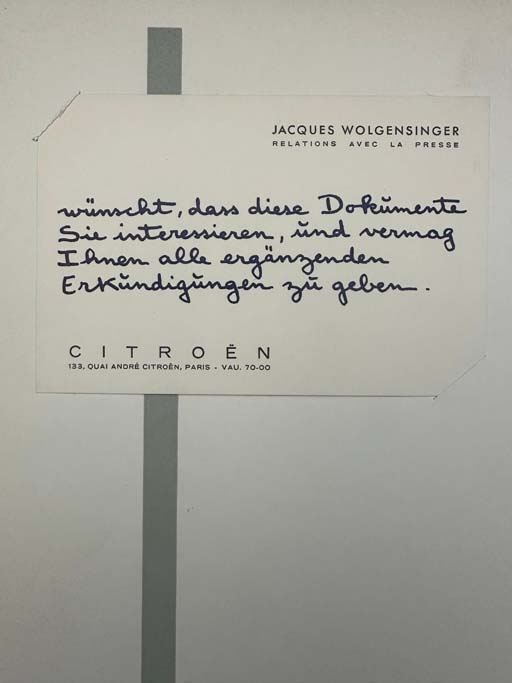 JACQUES WOLGENSINGER
RELATIONS AVEC LA PRESSE
wünscht, dass diese Dokŭmente
Sie interessieren, ŭnd vermag
Ihnen alle ergänzenden
Erkŭndigŭngen zŭ geben.
CITROËN
133, QUAI ANDRÉ CITROËN, PARIS - VAU. 70-00